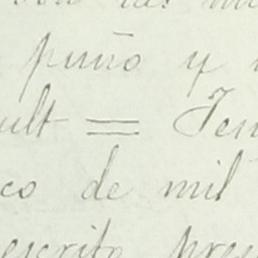 puño y
ult = Ten
co de mil
escrito pres